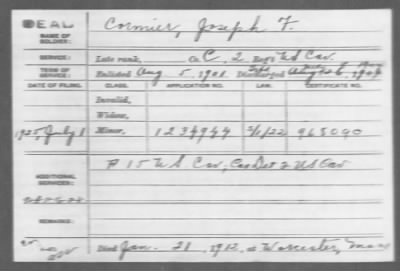 DEAL
NAME OF SOLDIER: Cormier, Joseph F.
SERVICE: Late rank, Co. C, 2 Reg't US Cav.
TERM OF SERVICE: Enlisted Aug 5, 1901 Discharged
DATE OF FILING. CLASS. APPLICATION NO. LAW. CERTIFICATE NO.
Invalid,
Widow,
1925, July 1 Minor, 1234944 5/1/22 965090
ADDITIONAL SERVICES: F 15 US Cav; Cas Det 2 US Cav
REMARKS:
Died Jan. 21, 1912, at Worcester, Mass